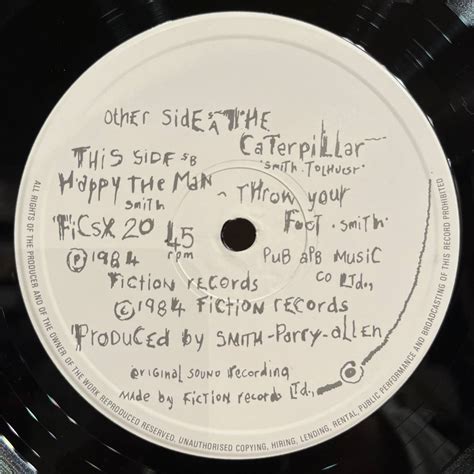 Other Side:SA THE
CaTerpiLLar
"SMITH.TOLHURST"
THIS SIDE SB
Happy THE MaN ~ THrow your
SMITH
FooT.SmiTh
FiCSX 20 45
rpm
PUB APB MUSIC
CO LTD.,
℗ 1984
Fiction records
© 1984 Fiction records
Produced by SMITH-Parry-allen
original sound recording
made by Fiction records LTD.,
ALL RIGHTS OF THE PRODUCER AND OF THE OWNER OF THE WORK REPRODUCED RESERVED, UNAUTHORISED COPYING, HIRING, LENDING, RENTAL, PUBLIC PERFORMANCE AND BROADCASTING OF THIS RECORD PROHIBITED